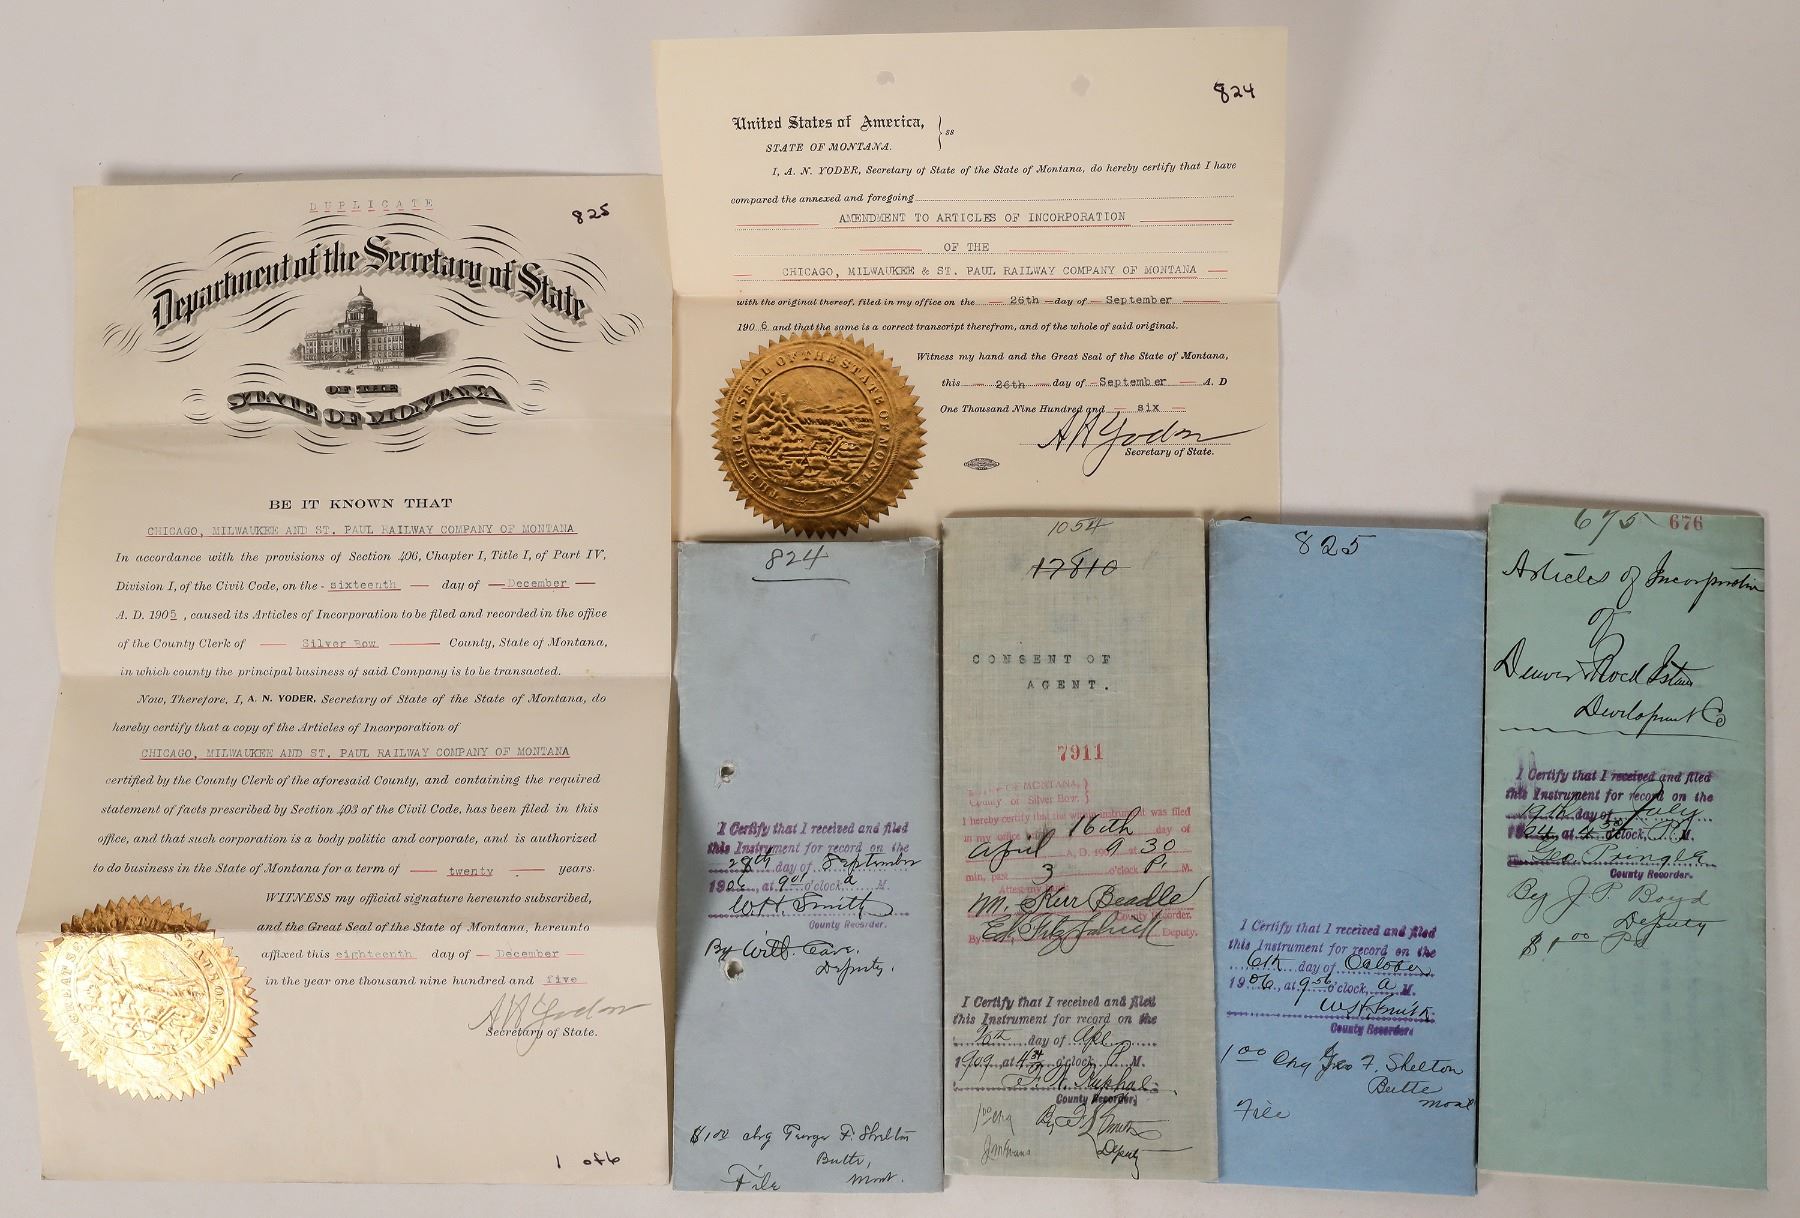 DUPLICATE
825
Department of the Secretary of State
OF THE
STATE OF MONTANA
BE IT KNOWN THAT
CHICAGO, MILWAUKEE AND ST. PAUL RAILWAY COMPANY OF MONTANA
In accordance with the provisions of Section 406, Chapter I, Title I, of Part IV,
Division I, of the Civil Code, on the - sixteenth — day of — December —
A. D. 1905, caused its Articles of Incorporation to be filed and recorded in the office
of the County Clerk of — Silver Bow — County, State of Montana,
in which county the principal business of said Company is to be transacted.
Now, Therefore, I, A. N. YODER, Secretary of State of the State of Montana, do
hereby certify that a copy of the Articles of Incorporation of
CHICAGO, MILWAUKEE AND ST. PAUL RAILWAY COMPANY OF MONTANA
certified by the County Clerk of the aforesaid County, and containing the required
statement of facts prescribed by Section 403 of the Civil Code, has been filed in this
office, and that such corporation is a body politic and corporate, and is authorized
to do business in the State of Montana for a term of — twenty — years.
WITNESS my official signature hereunto subscribed,
and the Great Seal of the State of Montana, hereunto
affixed this eighteenth day of — December —
in the year one thousand nine hundred and five
A N Yoder
Secretary of State.
1 of 6
824
United States of America, } ss
STATE OF MONTANA.
I, A. N. YODER, Secretary of State of the State of Montana, do hereby certify that I have
compared the annexed and foregoing
AMENDMENT TO ARTICLES OF INCORPORATION
OF THE
CHICAGO, MILWAUKEE & ST. PAUL RAILWAY COMPANY OF MONTANA
with the original thereof, filed in my office on the — 26th — day of — September —
1906 and that the same is a correct transcript therefrom, and of the whole of said original.
Witness my hand and the Great Seal of the State of Montana,
this — 26th — day of — September — A. D
One Thousand Nine Hundred and — six —
A N Yoder
Secretary of State.
THE GREAT SEAL OF THE STATE OF MONTANA
824
I Certify that I received and filed
this Instrument for record on the
28th day of September
1906, at 9 01 o'clock, a M.
W H Smith
County Recorder.
By Will. Cave.
Deputy.
$1.00 chg George F. Shelton
Butte,
Mont.
File
1054
17810
CONSENT OF
AGENT.
7911
STATE OF MONTANA, }
County of Silver Bow. }
I hereby certify that the within instrument was filed
in my office 16th day of
April A.D. 1909 at 30
min. past 3 o'clock P. M.
Attest my hand
M. Kerr Beadle
County Recorder.
By Ed. Fitzpatrick Deputy.
I Certify that I received and filed
this Instrument for record on the
day of Apl
1909, at 4 o'clock, P M.
County Recorder,
By
Deputy
825
I Certify that I received and filed
this Instrument for record on the
6th day of October
1906, at 9 56 o'clock, a M.
W H Smith
County Recorder.
1 00 chg Geo F. Shelton
Butte
Mont
File
675 676
Articles of Incorporation
of
Denver Rock Island
Development Co
I Certify that I received and filed
this Instrument for record on the
19th day of July
at 4 30 o'clock, P M.
Geo Pringle
County Recorder.
By J. P. Boyd
Deputy
$1.00 Pd